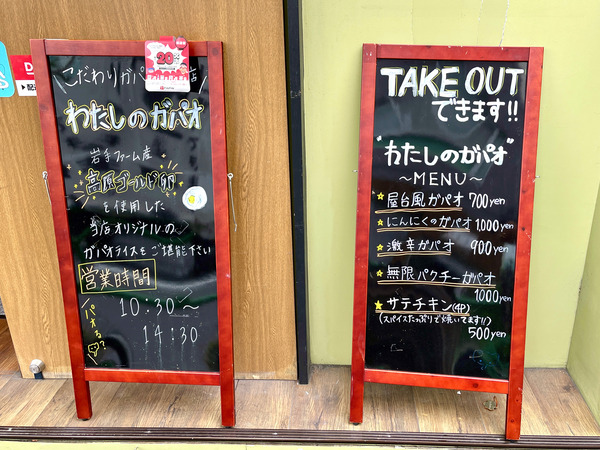 こだわりガパ
店
20%
PayPay
D
配
わたしのガパオ
岩手ファーム産
高原ゴールド卵
を使用した
当店オリジナルの
ガパオライスをご堪能下さい
営業時間
10:30〜
14:30
パオる?
TAKE OUT
できます!!
"わたしのガパオ"
〜MENU〜
屋台風ガパオ 700yen
にんにくのガパオ 1,000yen
激辛ガパオ 900yen
無限パクチーガパオ
1000yen
サテチキン(4P)
(スパイスたっぷりで焼いてます!!)
500yen